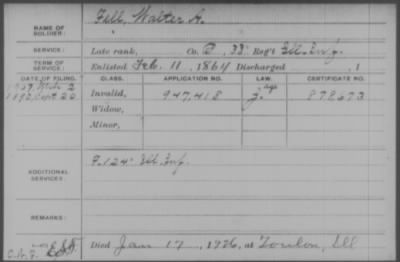 NAME OF SOLDIER: Fell, Walter A.
SERVICE: Late rank, Co. B, 33 Reg't Ill. Inf.
TERM OF SERVICE: Enlisted Feb. 11, 1864 Discharged , 1
DATE OF FILING. CLASS. APPLICATION NO. LAW. CERTIFICATE NO.
1907, Mch 2 Invalid,
1890, Sept 20 947,418 878673
Widow,
Minor,
ADDITIONAL SERVICES: F. 124" Ill. Inf.
REMARKS:
Died Jan 17, 1926, at Toulon, Ill